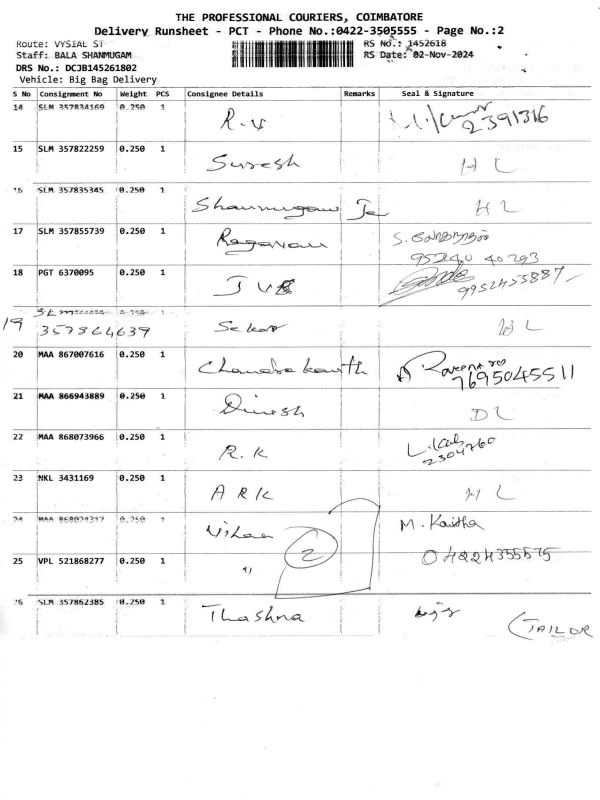 THE PROFESSIONAL COURIERS, COIMBATORE
Delivery Runsheet - PCT - Phone No.:0422-3505555 - Page No.:2
Route: VYSIAL ST RS No.: 1452618
Staff: BALA SHANMUGAM RS Date: 02-Nov-2024
DRS No.: DCJB145261802
Vehicle: Big Bag Delivery
S No Consignment No Weight PCS Consignee Details Remarks Seal & Signature
14 SLM 357834169 0.250 1 R.V 2391316
15 SLM 357822259 0.250 1 Suresh H L
16 SLM 357835345 0.250 1 Shanmugam H L
17 SLM 357855739 0.250 1 Ragavan S.
95240 40293
18 PGT 6370095 0.250 1 9952455887
19 357864639 Sekar
20 MAA 867007616 0.250 1 Chandrakanth
7695045511
21 MAA 866943889 0.250 1 Dinesh D L
22 MAA 868073966 0.250 1 R.K
2304760
23 NKL 3431169 0.250 1 A R K
24 MAA 868024317 0.250 1 M. Kavitha
2
25 VPL 521868277 0.250 1 " 04224355575
26 SLM 357862385 0.250 1 Thashna
(TAILOR